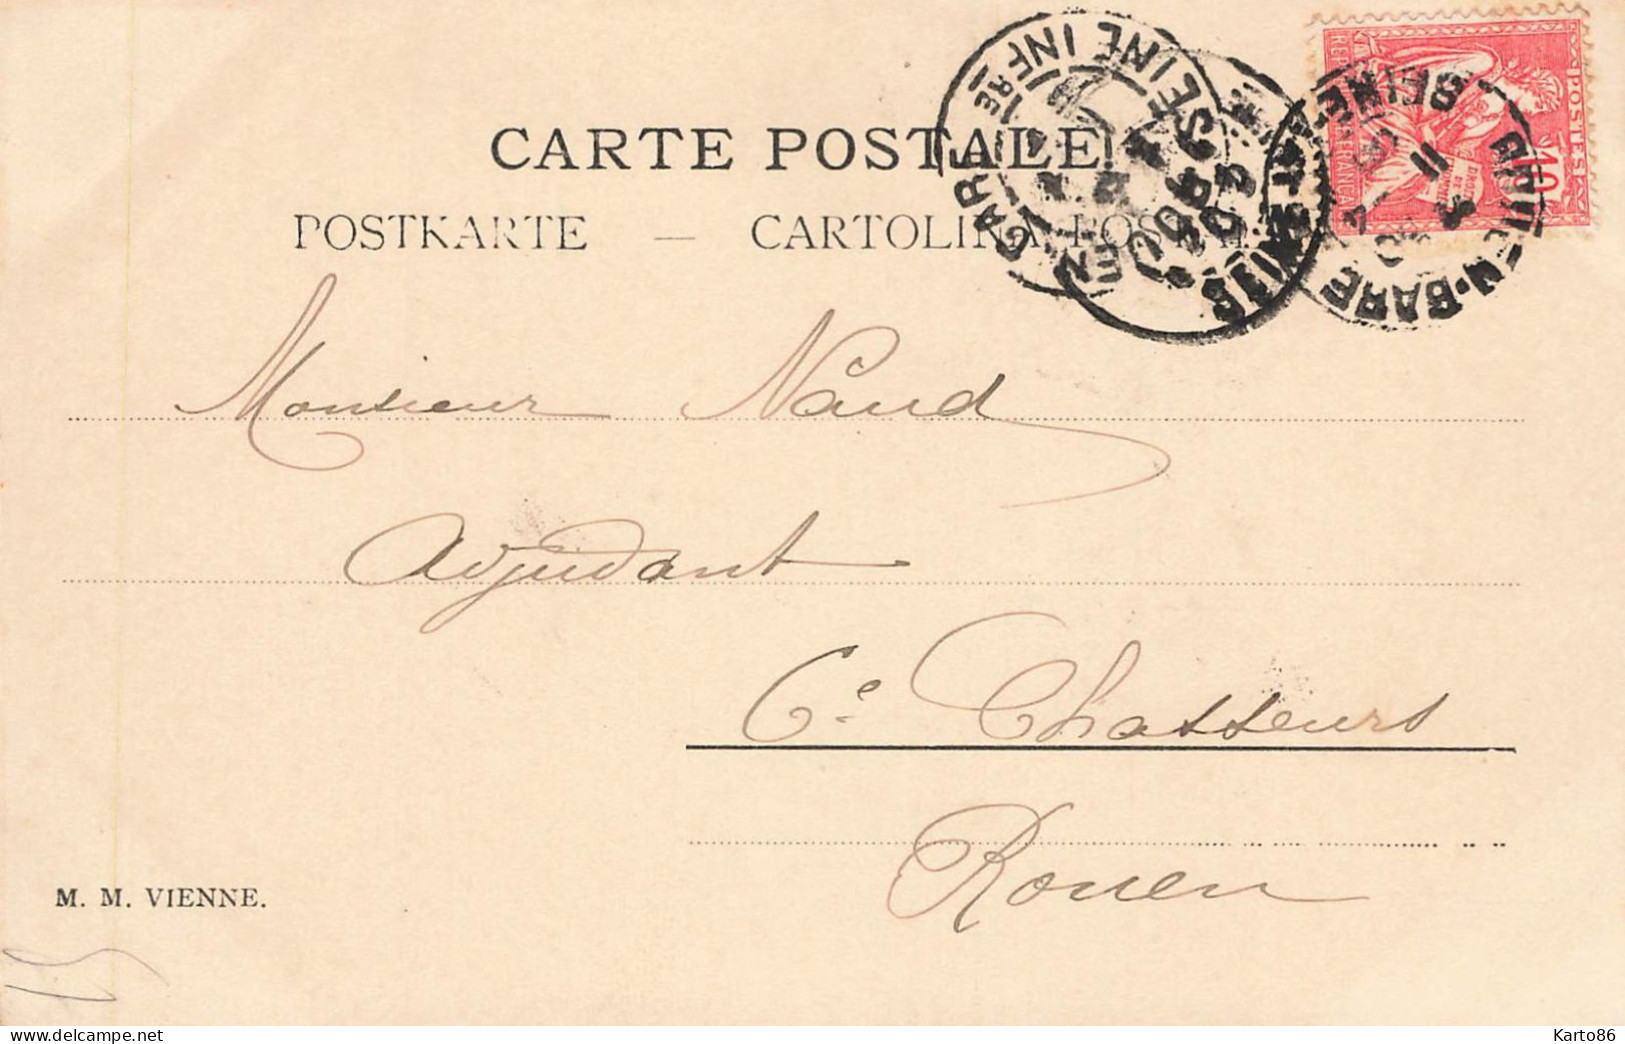 CARTE POSTALE
POSTKARTE — CARTOLINA POSTALE
POSTES
10
SEINE INFRE
GARE
SEINE
GARE
ROUEN
Monsieur Naud
Adjudant
6e Chasseurs
Rouen
M. M. VIENNE.
15
Karto86